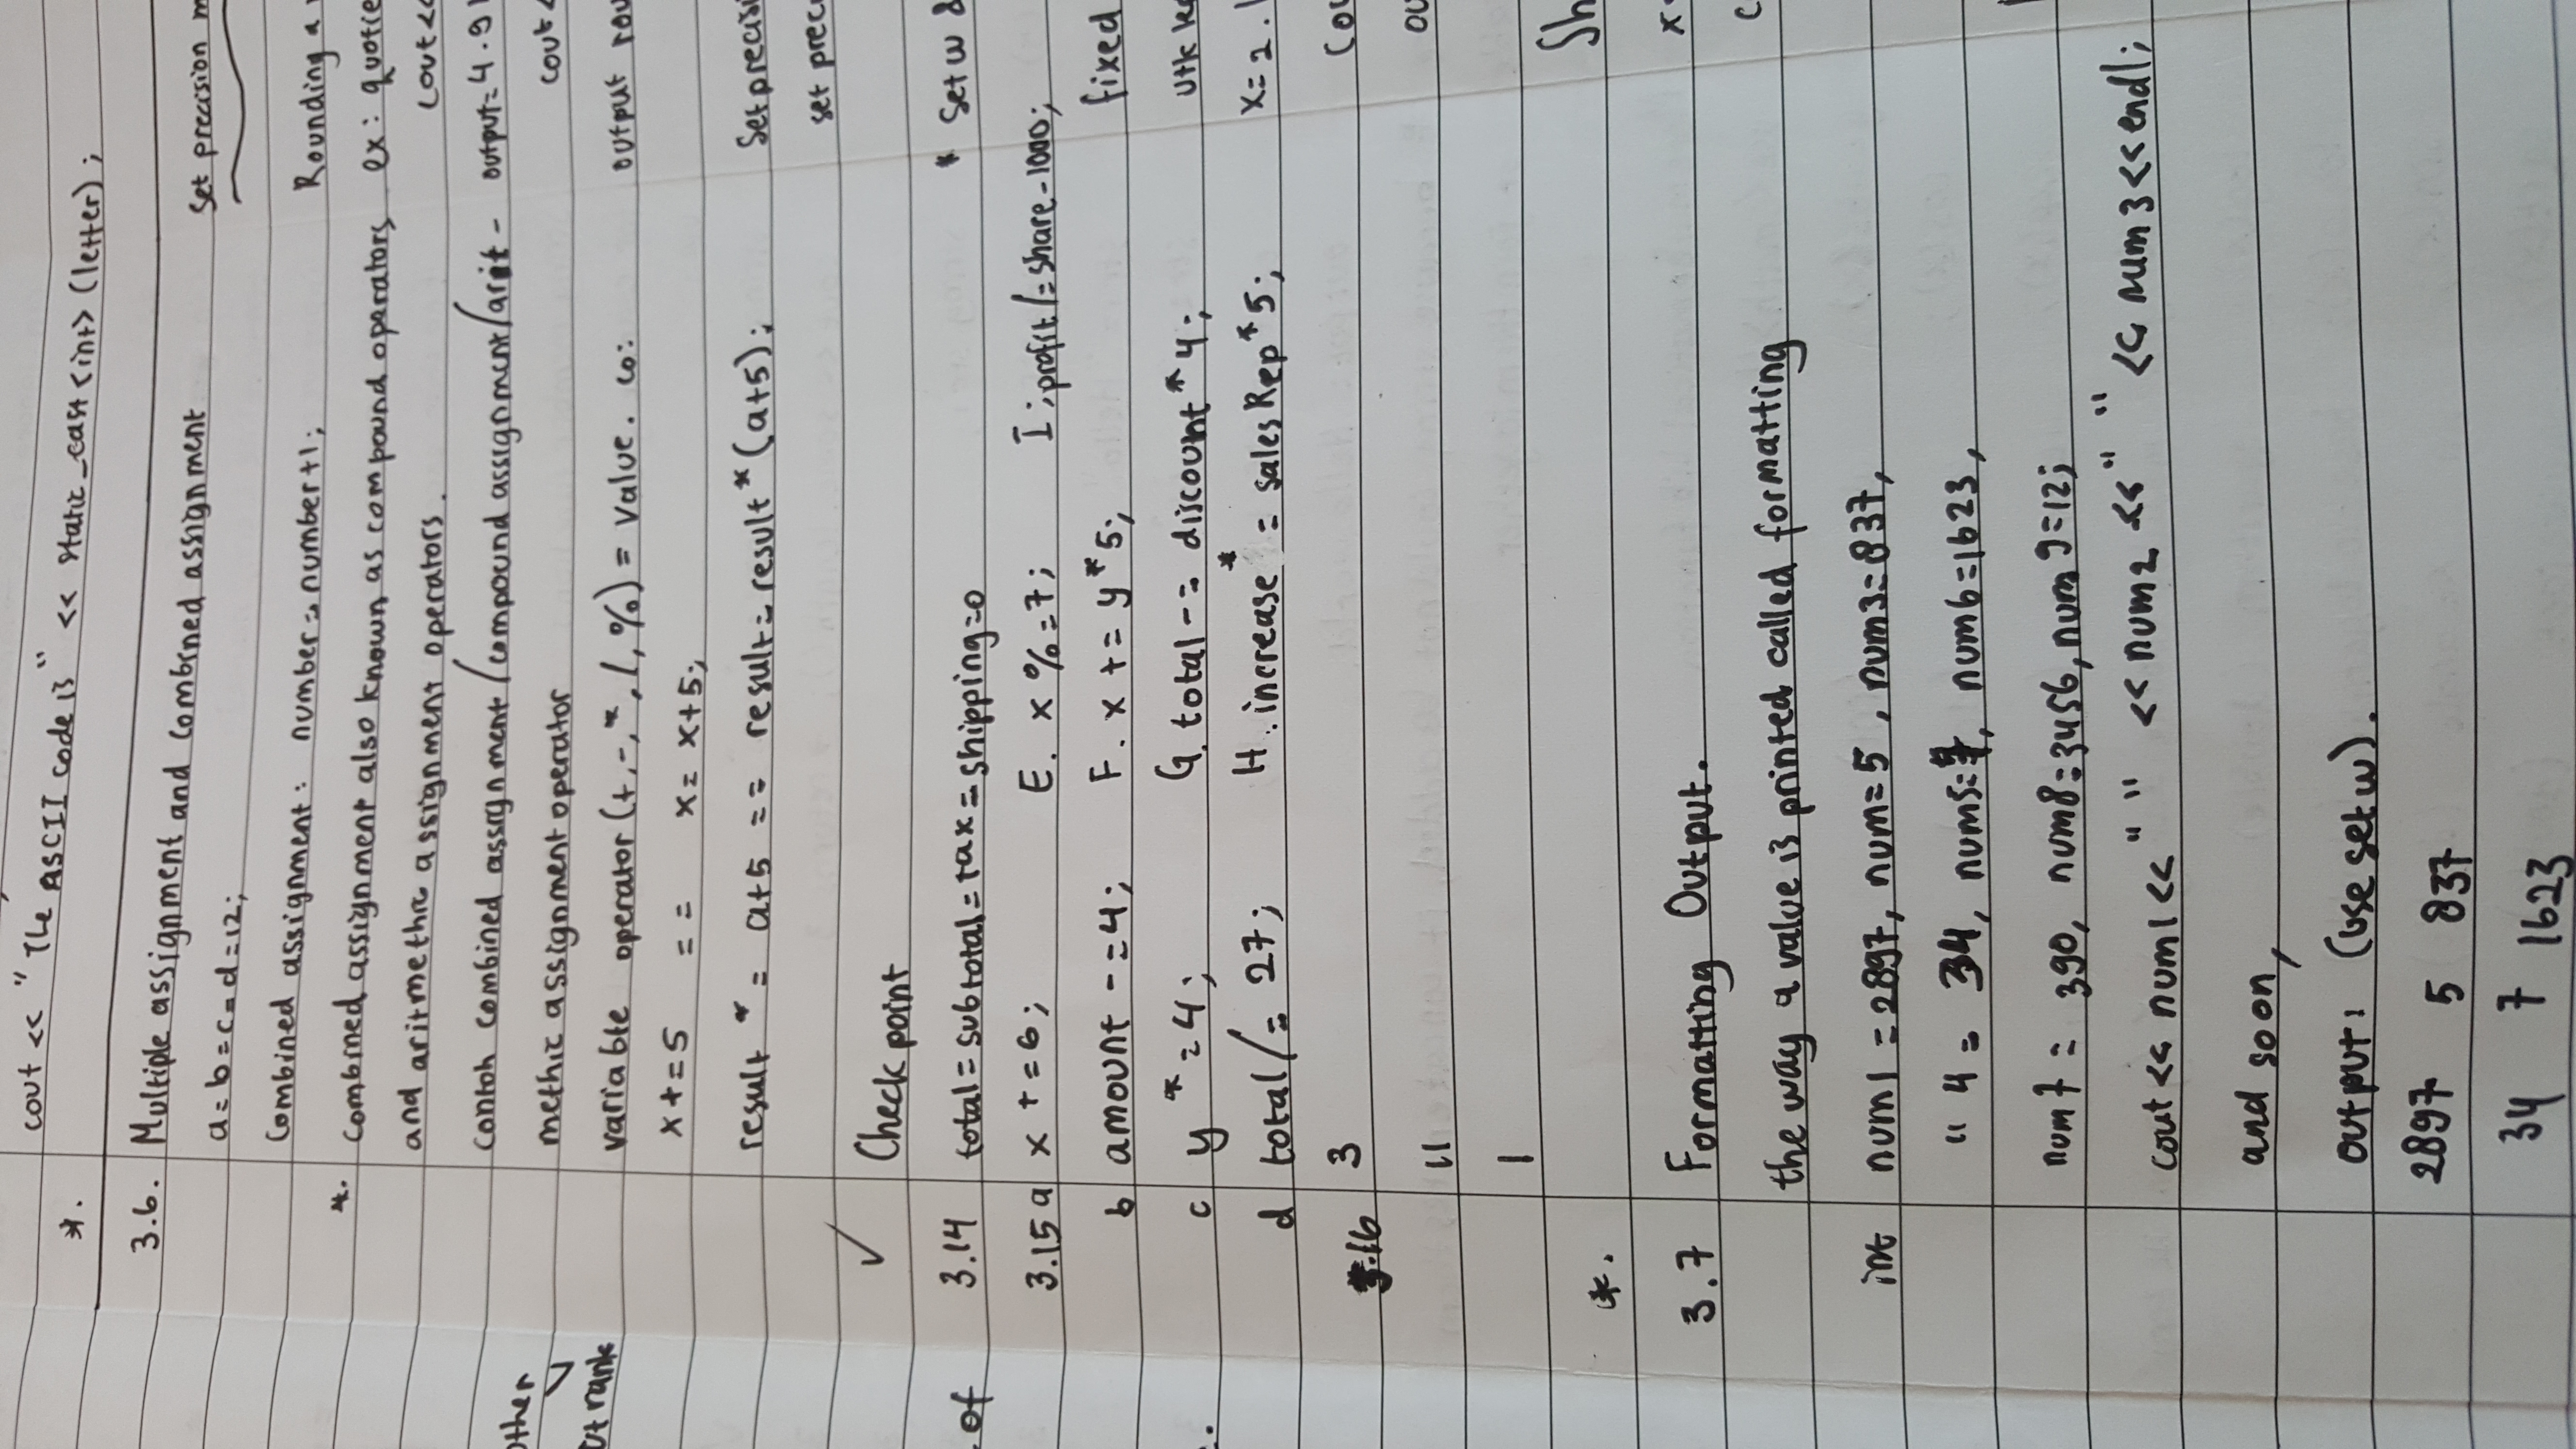 cout << "The ASCII code is" << static_cast<int> (letter);
*.
3.6. Multiple assignment and combined assignment
a=b=c=d=12;
Combined assignment: number=number+1;
*. combined assignment also known as compound operators
and aritmethic assignment operators.
contoh combined assignment/compound assignment/arit-
methic assignment operator
variable operator (+,-,*,/,%) = value. co:
x+=5 == x= x+5;
result *= a+5 == result=result*(a+5);
✓ Check point
3.14 total=subtotal=tax=shipping=0
3.15 a x +=6; E. x %=7; I ;profit /=share-1000;
b amount -=4; F. x += y*5;
c y *=4; G. total -= discount*4;
d total /= 27; H. increase *= salesRep*5;
3.16 3
11
1
*.
3.7 Formatting Output.
the way a value is printed called formatting
int num1 =2897, num=5, num3=837,
" 4 = 34, num5=7, num6=1623,
num7 = 390, num8=3456, num9=12;
cout << num1 << " " << num2 << " " << num3 << endl;
and soon,
output: (use setw).
2897 5 837
34 7 1623
other
rank
of
set precision
Rounding a
ex:
cout <<
output=4.91
cout <
output
set
* Setw &
fixed
utk
x=2.
Sh
x